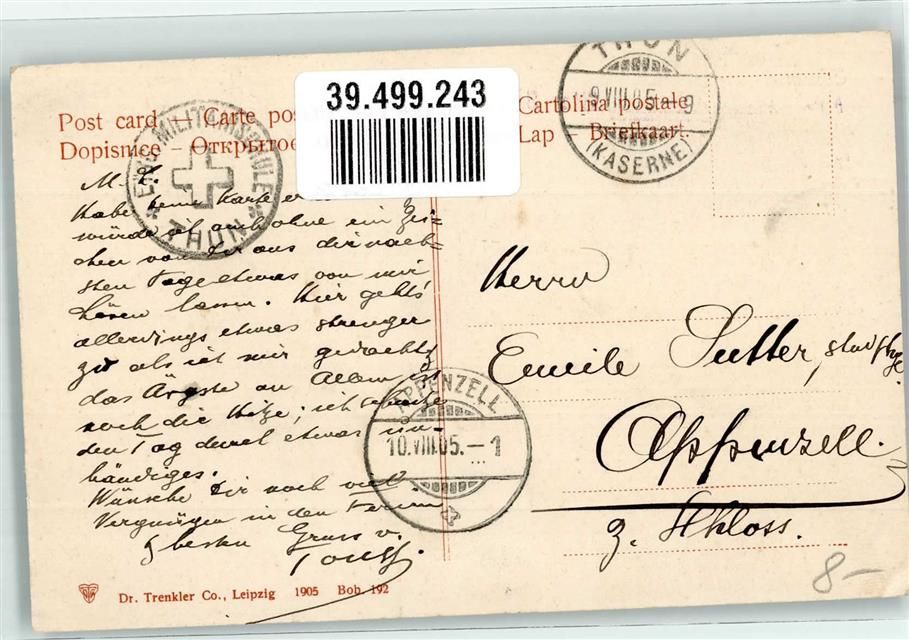 39.499.243
Post card — Carte pos
Cartolina postale
Dopisnice — Открытое
Lap — Briefkaart.
EIDG. MILITÄRSCHULE
THUN
THUN
9.VIII.05.–9
(KASERNE)
M. L.
Habe deine Karte
würde ich auch ohne ein Zei=
chen von Dir aus die näch=
sten Tage etwas von mir
hören lassen. Hier geht's
allerdings etwas strenger
zu als ich mir gedacht;
das Ärgste an Allem ist
noch die Hitze; ich schwitze
den Tag durch etwas un=
bändiges.
Wünsche Dir noch viel
Vergnügen in den Ferien
& besten Gruss v.
Herrn
Emile Sutter,
Appenzell.
z. Schloss.
APPENZELL
10.VIII.05.–1
8–
Dr. Trenkler Co., Leipzig 1905 Bob. 192